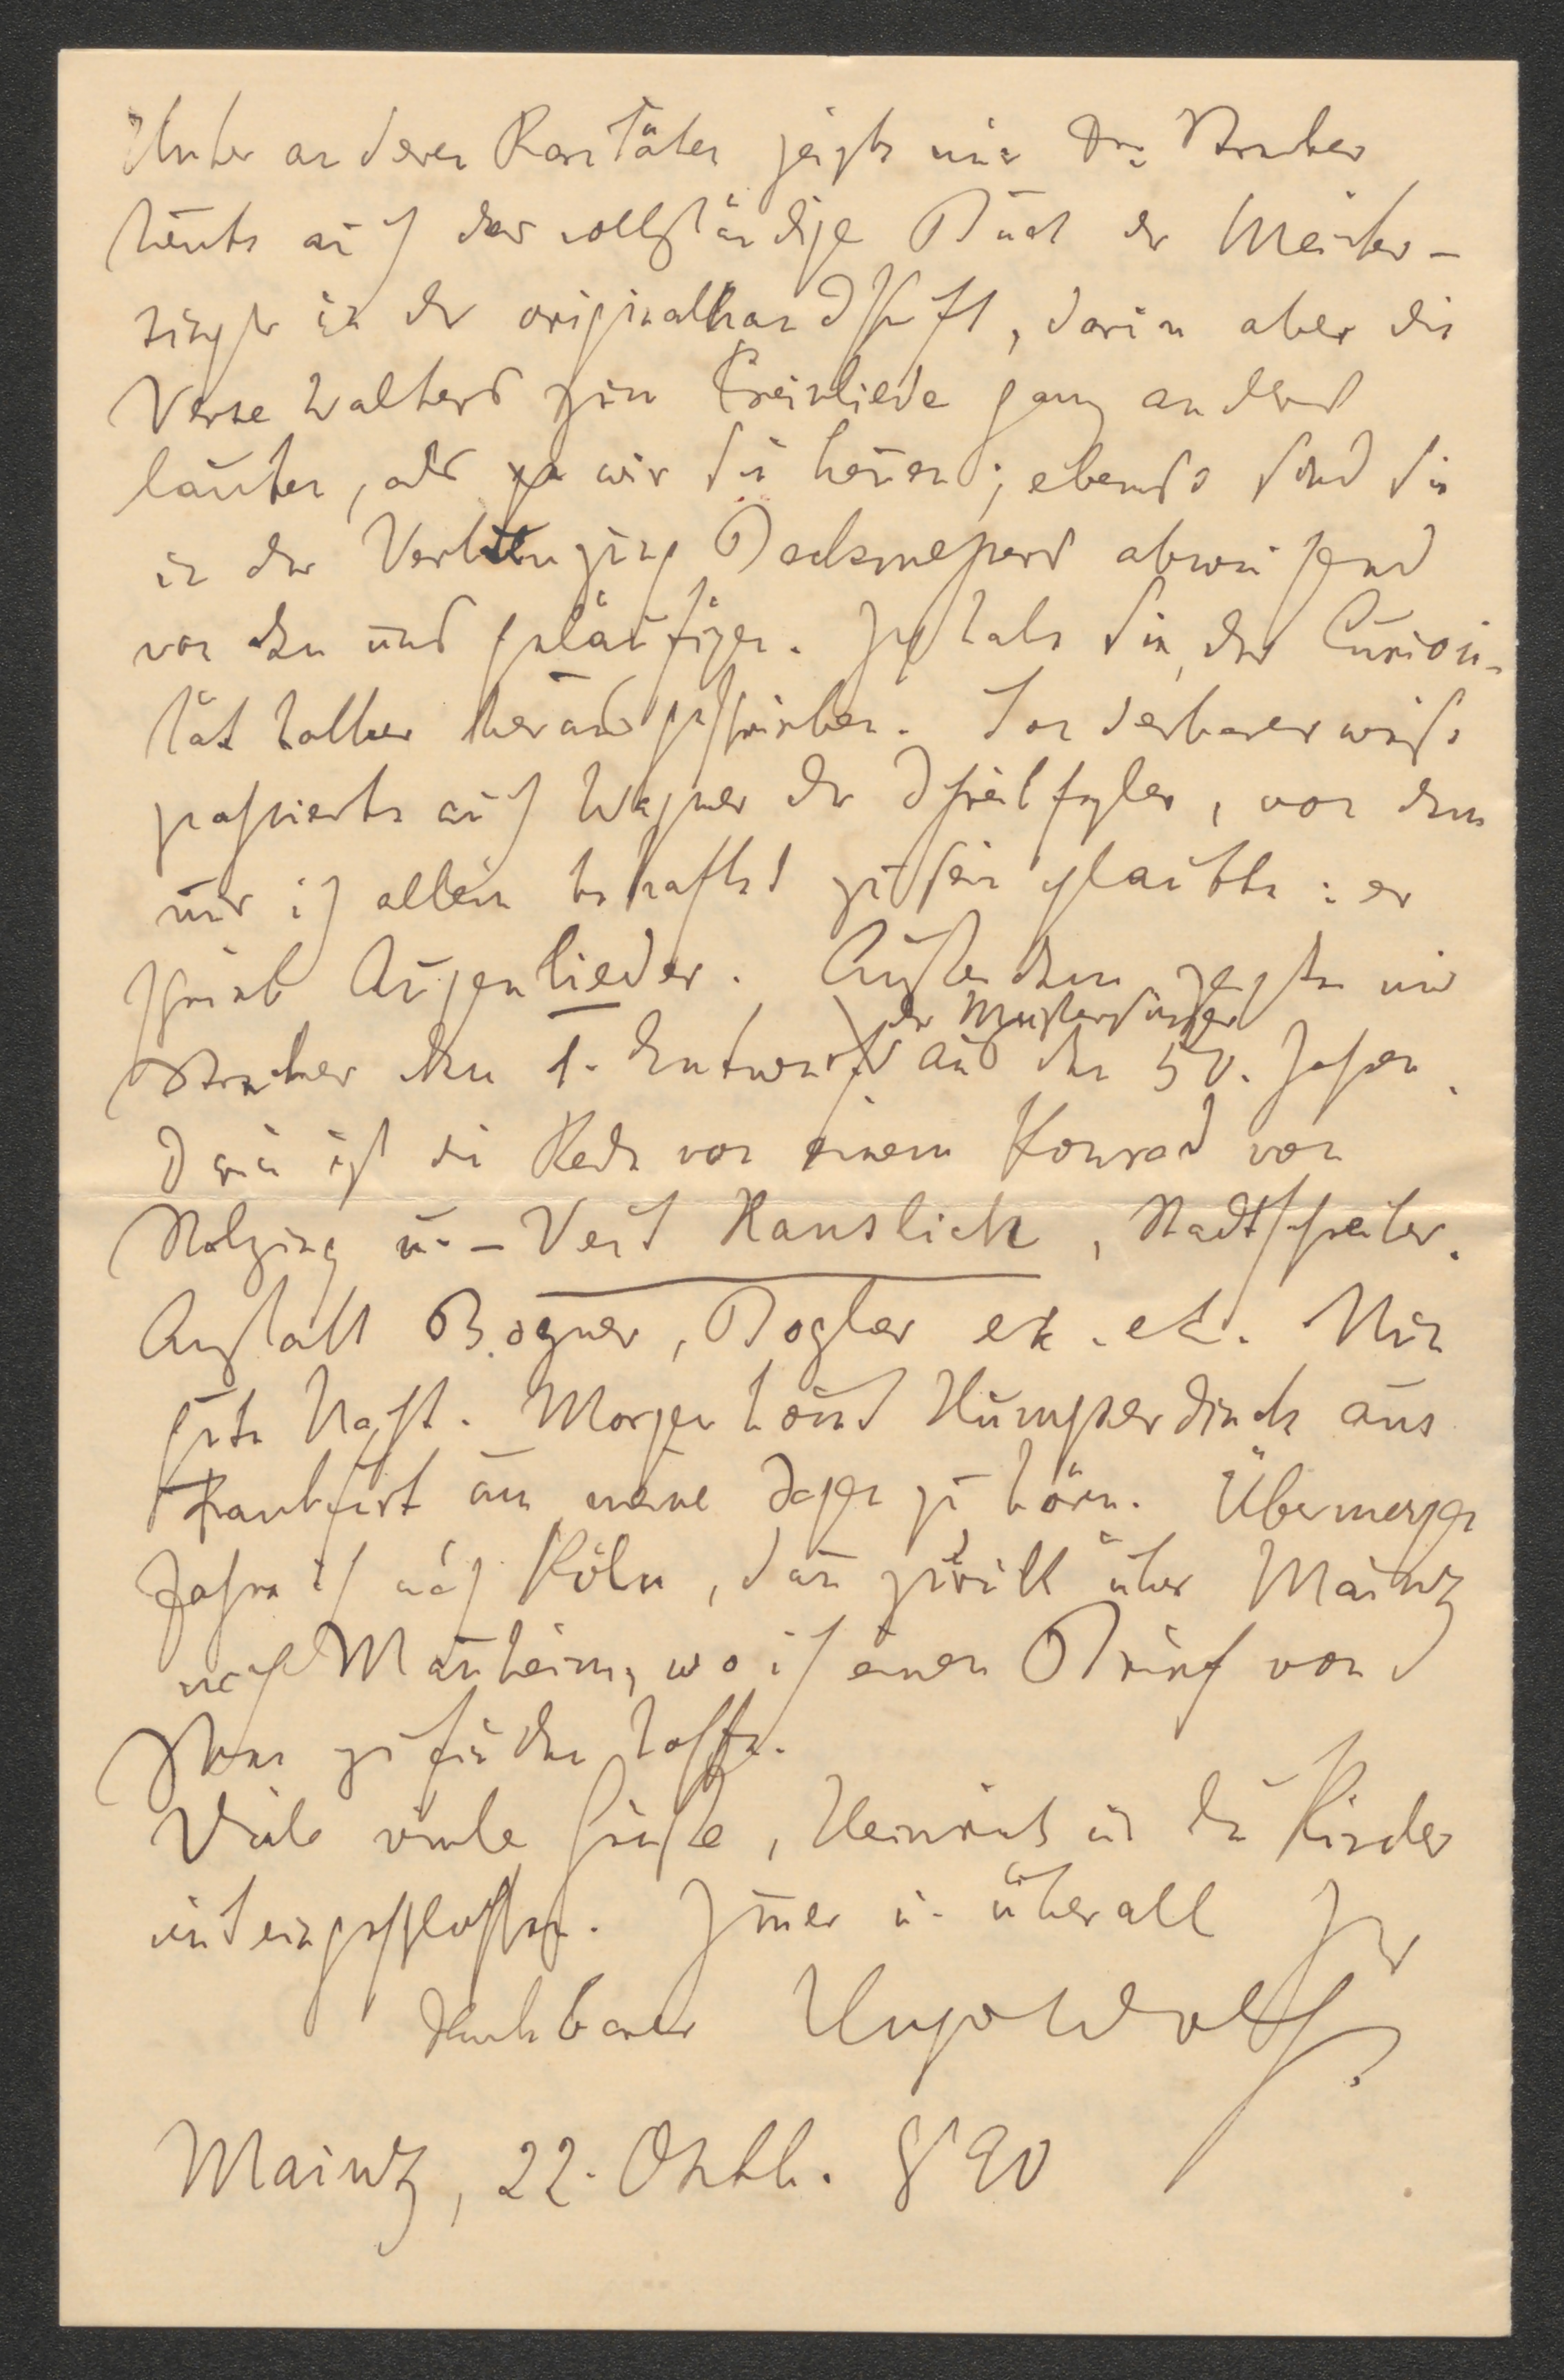 Unter anderen Raritäten zeigte mir Dr. Strecker
heute auch das vollständige Buch der Meister-
singer in der Originalhandschrift, darin aber die
Verse Walters zum Preisliede ganz anders
lauten, als wir sie kennen; ebenso sind sie
in der Verhunzung Beckmessers abweichend
von den uns geläufigen. Ich habe sie, der Curiosi-
tät halber herausgeschrieben. Sonderbarerweise
passierte auch Wagner der Schreibfehler, von dem
nur ich allein behaftet zu sein glaubte: er
schrieb Augenlieder. Außerdem zeigte mir
Strecker den 1. Entwurf der Meistersinger aus den 50. Jahren.
Darin ist die Rede von einem Konrad von
Stolzing u. – Veit Hanslich, Stadtschreiber.
Anstatt Pogner, Bogler etc. etc. Nun
gute Nacht. Morgen kommt Humperdinck aus
Frankfurt um meine Sachen zu hören. Übermorgen
fahre ich nach Köln, dann zurück über Mainz
nach Mannheim, wo ich einen Brief von
Ihnen zu finden hoffe.
Viele viele Grüße, Heinrich u. die Kinder
mit eingeschlossen. Immer u. überall Ihr
dankbarer Hugo Wolf.
Mainz, 22. Oktb. 890